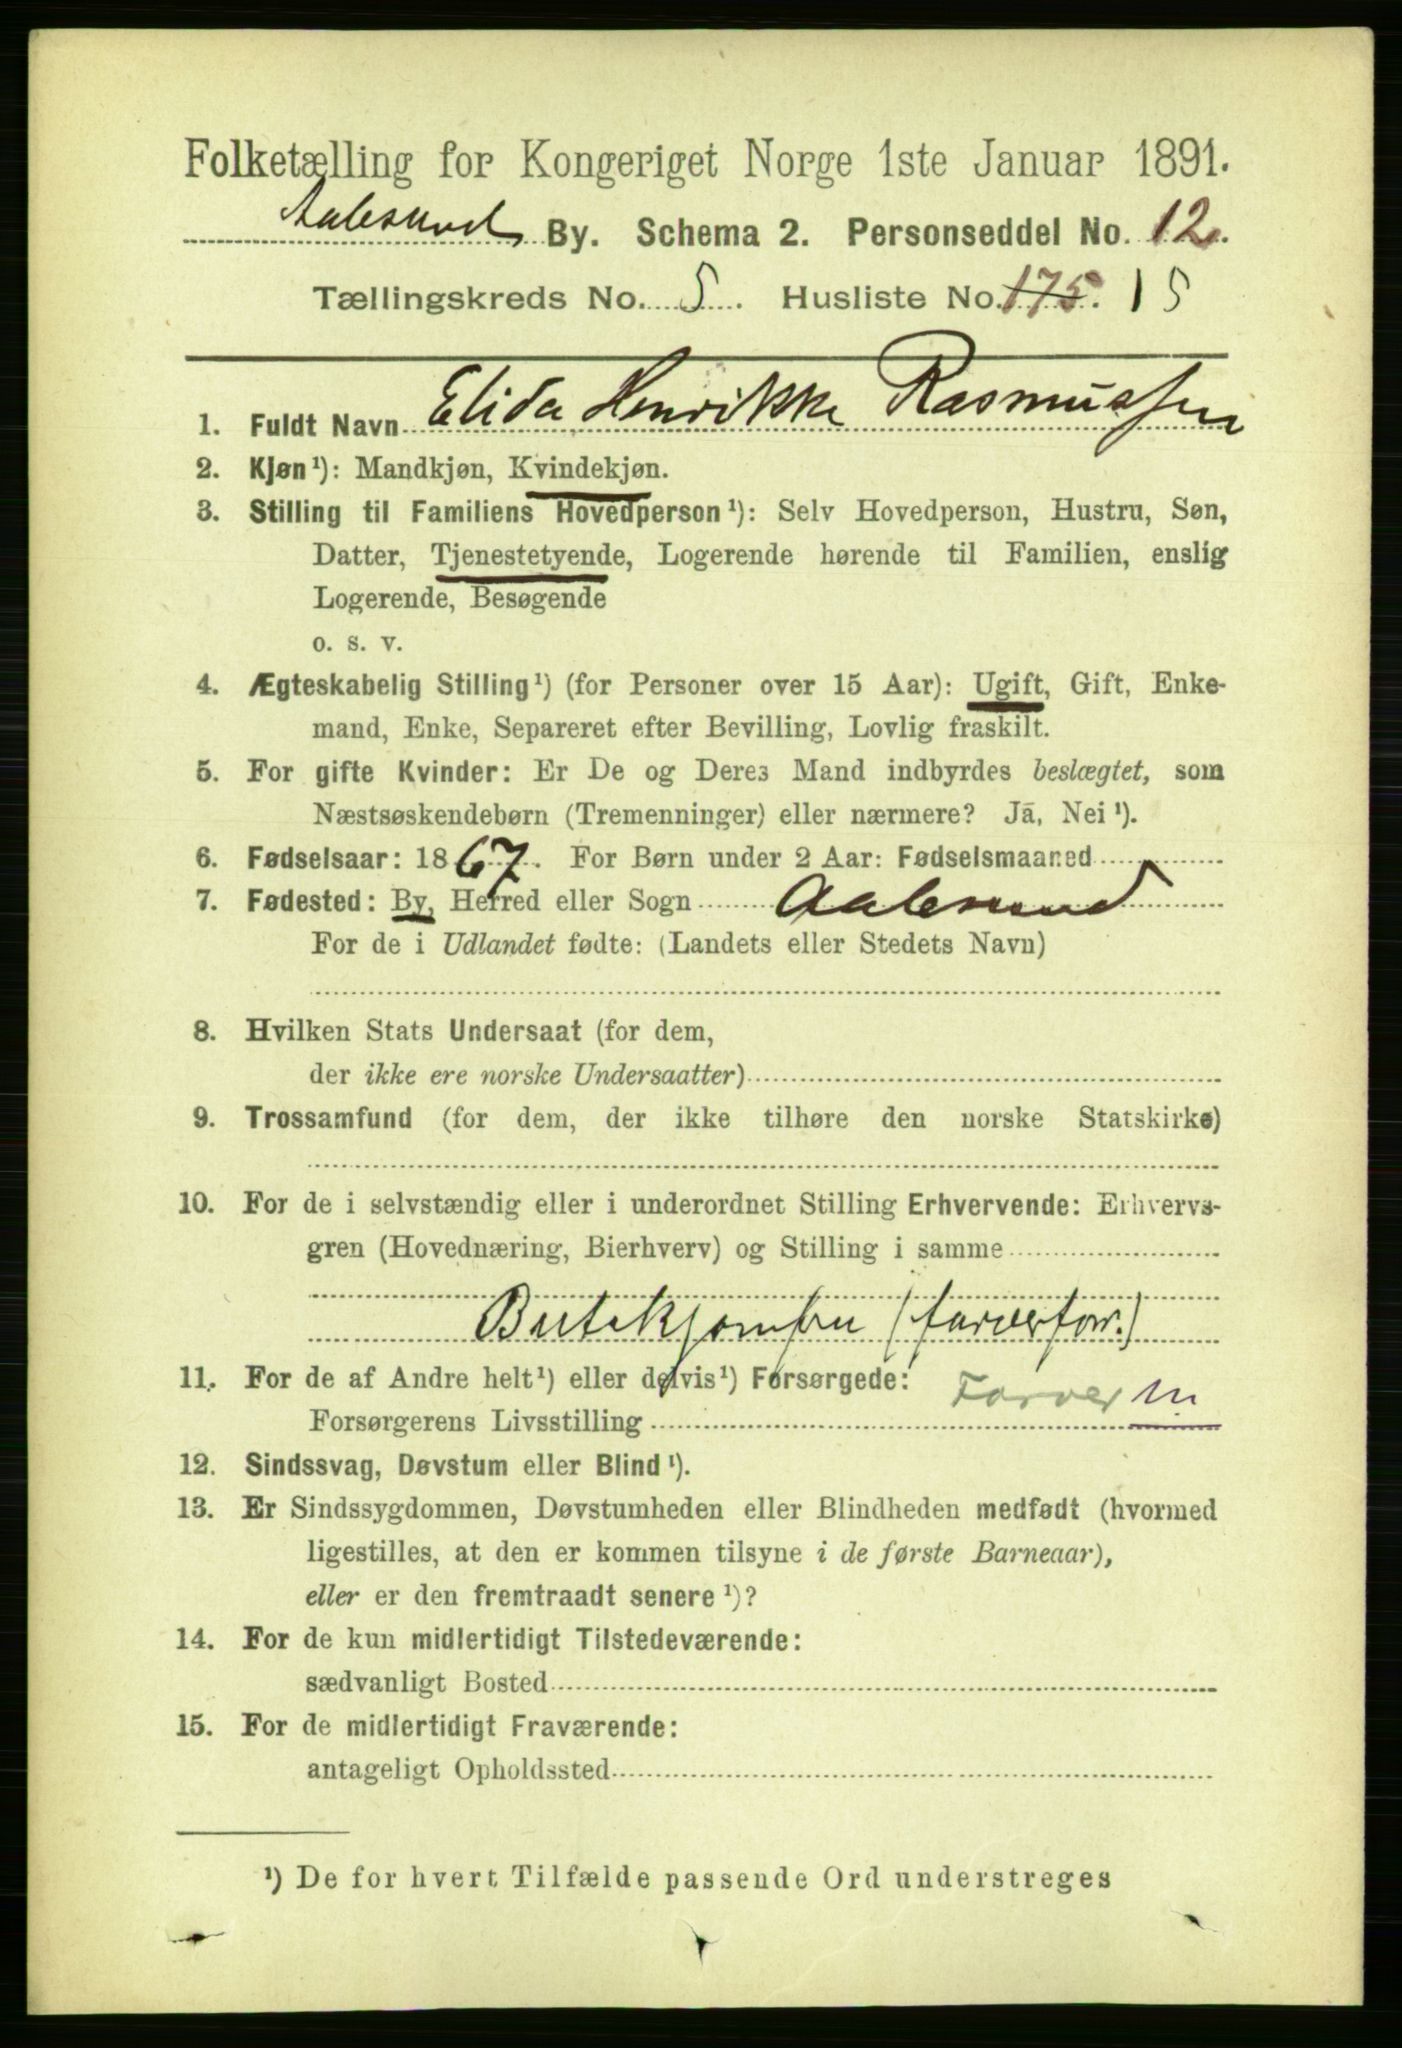 Folketælling for Kongeriget Norge 1ste Januar 1891.
Aalesund By. Schema 2. Personseddel No. 12.
Tællingskreds No. 5. Husliste No. 175. 15
1. Fuldt Navn Elida Henrikke Rasmussen
2. Kjøn¹): Mandkjøn, Kvindekjøn.
3. Stilling til Familiens Hovedperson¹): Selv Hovedperson, Hustru, Søn,
Datter, Tjenestetyende, Logerende hørende til Familien, enslig
Logerende, Besøgende
o. s. v.
4. Ægteskabelig Stilling¹) (for Personer over 15 Aar): Ugift, Gift, Enke-
mand, Enke, Separeret efter Bevilling, Lovlig fraskilt.
5. For gifte Kvinder: Er De og Deres Mand indbyrdes beslægtet, som
Næstsøskendebørn (Tremenninger) eller nærmere? Ja, Nei¹).
6. Fødselsaar: 1867. For Børn under 2 Aar: Fødselsmaaned
7. Fødested: By, Herred eller Sogn Aalesund
For de i Udlandet fødte: (Landets eller Stedets Navn)
8. Hvilken Stats Undersaat (for dem,
der ikke ere norske Undersaatter)
9. Trossamfund (for dem, der ikke tilhøre den norske Statskirke)
10. For de i selvstændig eller i underordnet Stilling Erhvervende: Erhvervs-
gren (Hovednæring, Bierhverv) og Stilling i samme
Butikjomfru (farverforr.)
11. For de af Andre helt¹) eller delvis¹) Forsørgede:
Forsørgerens Livsstilling Farver m
12. Sindssvag, Døvstum eller Blind¹).
13. Er Sindssygdommen, Døvstumheden eller Blindheden medfødt (hvormed
ligestilles, at den er kommen tilsyne i de første Barneaar),
eller er den fremtraadt senere¹)?
14. For de kun midlertidigt Tilstedeværende:
sædvanligt Bosted
15. For de midlertidigt Fraværende:
antageligt Opholdssted
¹) De for hvert Tilfælde passende Ord understreges